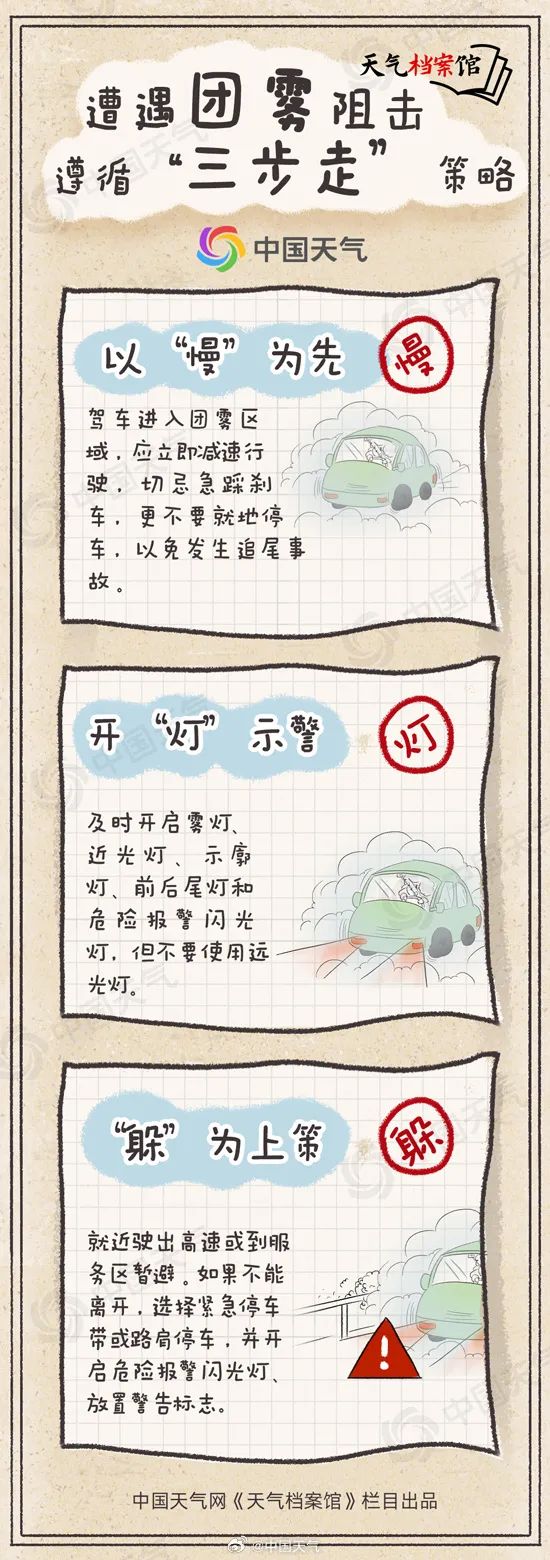 天气档案馆
遭遇团雾阻击
遵循“三步走”策略
中国天气
以“慢”为先
慢
驾车进入团雾区
域，应立即减速行
驶，切忌急踩刹
车，更不要就地停
车，以免发生追尾事
故。
开“灯”示警
灯
及时开启雾灯、
近光灯、示廓
灯、前后尾灯和
危险报警闪光
灯，但不要使用远
光灯。
“躲”为上策
躲
就近驶出高速或到服
务区暂避。如果不能
离开，选择紧急停车
带或路肩停车，并开
启危险报警闪光灯、
放置警告标志。
!
中国天气网《天气档案馆》栏目出品
@中国天气